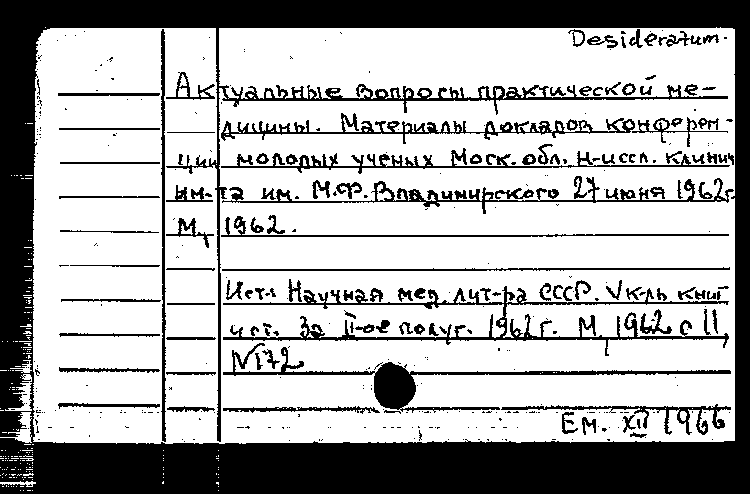 Desideratum.
Актуальные вопросы практической ме-
дицины. Материалы докладов конферен-
ции молодых ученых Моск. обл. н-иссл. клинич
ин-та им. М.Ф. Владимирского 27 июня 1962г.
М., 1962.
Ист.: Научная мед. лит-ра СССР. Ук-ль книг
ист. за II-ое полуг. 1962 г. М, 1962 с 11,
N172
Ем. XII 1966